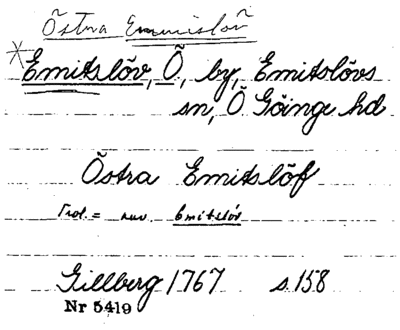 Östra Emmislöv
Emitslöv, Ö, by, Emitslövs
sn, Ö Göinge hd
Östra Emitslöf
Trol. = nuv. Emitslöv
Gillberg 1767 s. 158
Nr 5419